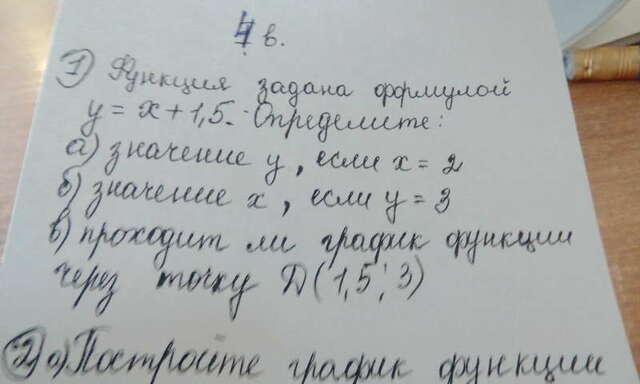 4 в.
1) Функция задана формулой
y = x + 1,5. Определите:
а) значение y, если x = 2
б) значение x, если y = 3
в) проходит ли график функции
через точку D(1,5; 3)
2) а) Постройте график функции